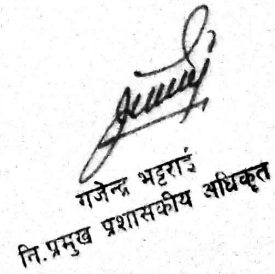 गजेन्द्र भट्टराई
नि.प्रमुख प्रशासकीय अधिकृत